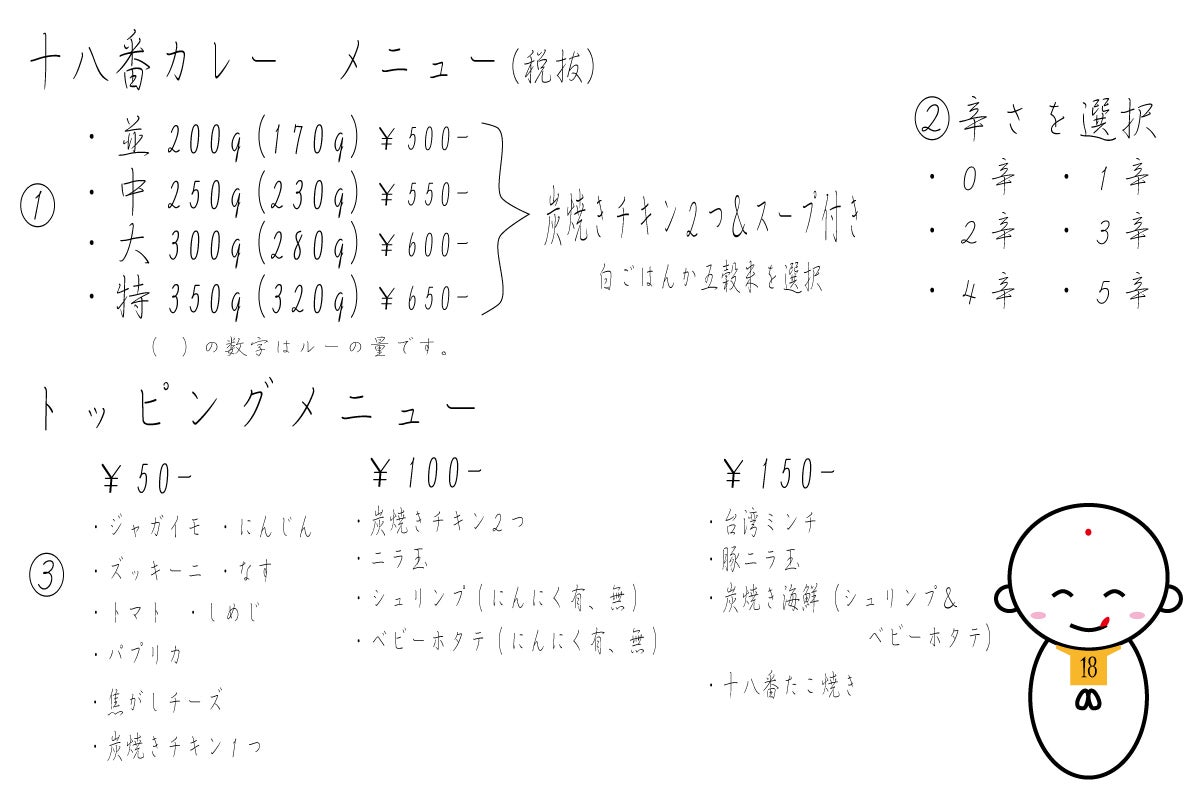 十八番カレー　メニュー(税抜)
①
・並 200g(170g) ¥500-
・中 250g(230g) ¥550-
・大 300g(280g) ¥600-
・特 350g(320g) ¥650-
(　)の数字はルーの量です。
炭焼きチキン2つ&スープ付き
白ごはんか五穀米を選択
②辛さを選択
・0辛　・1辛
・2辛　・3辛
・4辛　・5辛
トッピングメニュー
③
¥50-
・ジャガイモ ・にんじん
・ズッキーニ ・なす
・トマト ・しめじ
・パプリカ
・焦がしチーズ
・炭焼きチキン1つ
¥100-
・炭焼きチキン2つ
・ニラ玉
・シュリンプ(にんにく有、無)
・ベビーホタテ(にんにく有、無)
¥150-
・台湾ミンチ
・豚ニラ玉
・炭焼き海鮮(シュリンプ&
ベビーホタテ)
・十八番たこ焼き
18